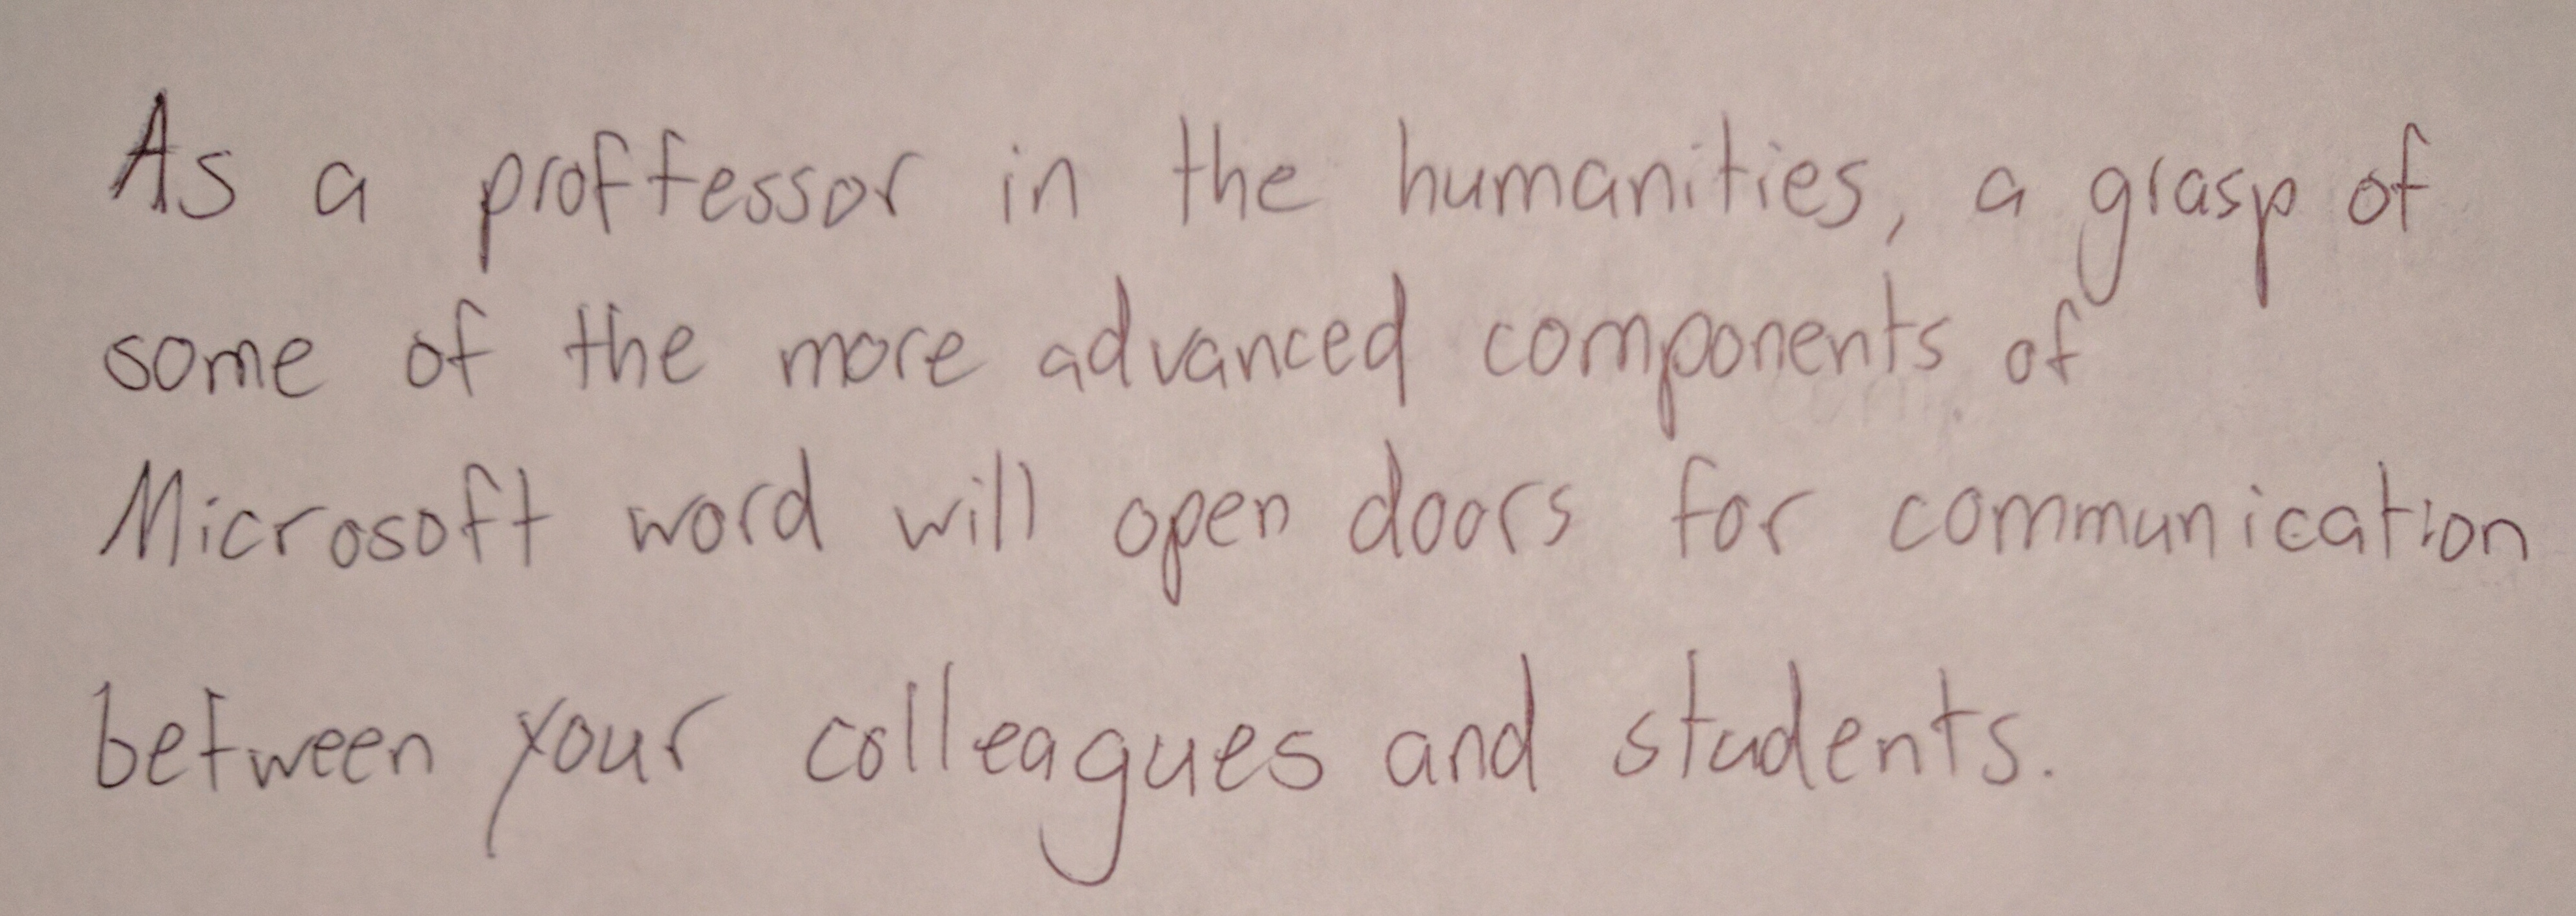 As a proffessor in the humanities, a grasp of
some of the more advanced components of
Microsoft word will open doors for communication
between your colleagues and students.